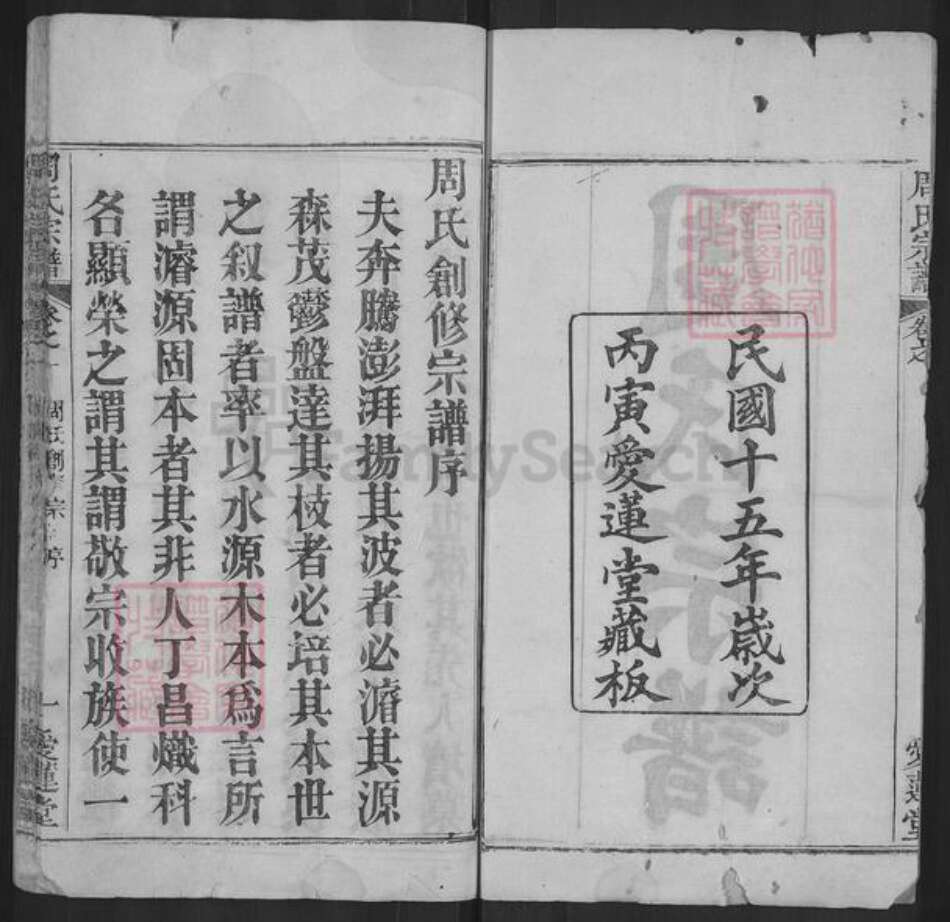 周氏宗譜
卷之
愛蓮堂
民國十五年歲次
丙寅愛蓮堂藏板
周氏創修宗譜序
夫奔騰澎湃揚其波者必濬其源
森茂鬱盤達其枝者必培其本世
之叙譜者率以水源木本為言所
謂濬源固本者其非人丁昌熾科
各顯榮之謂其謂敬宗收族使一
周氏宗譜
卷之一
周氏創修宗譜序
一
愛蓮堂
FamilySearch